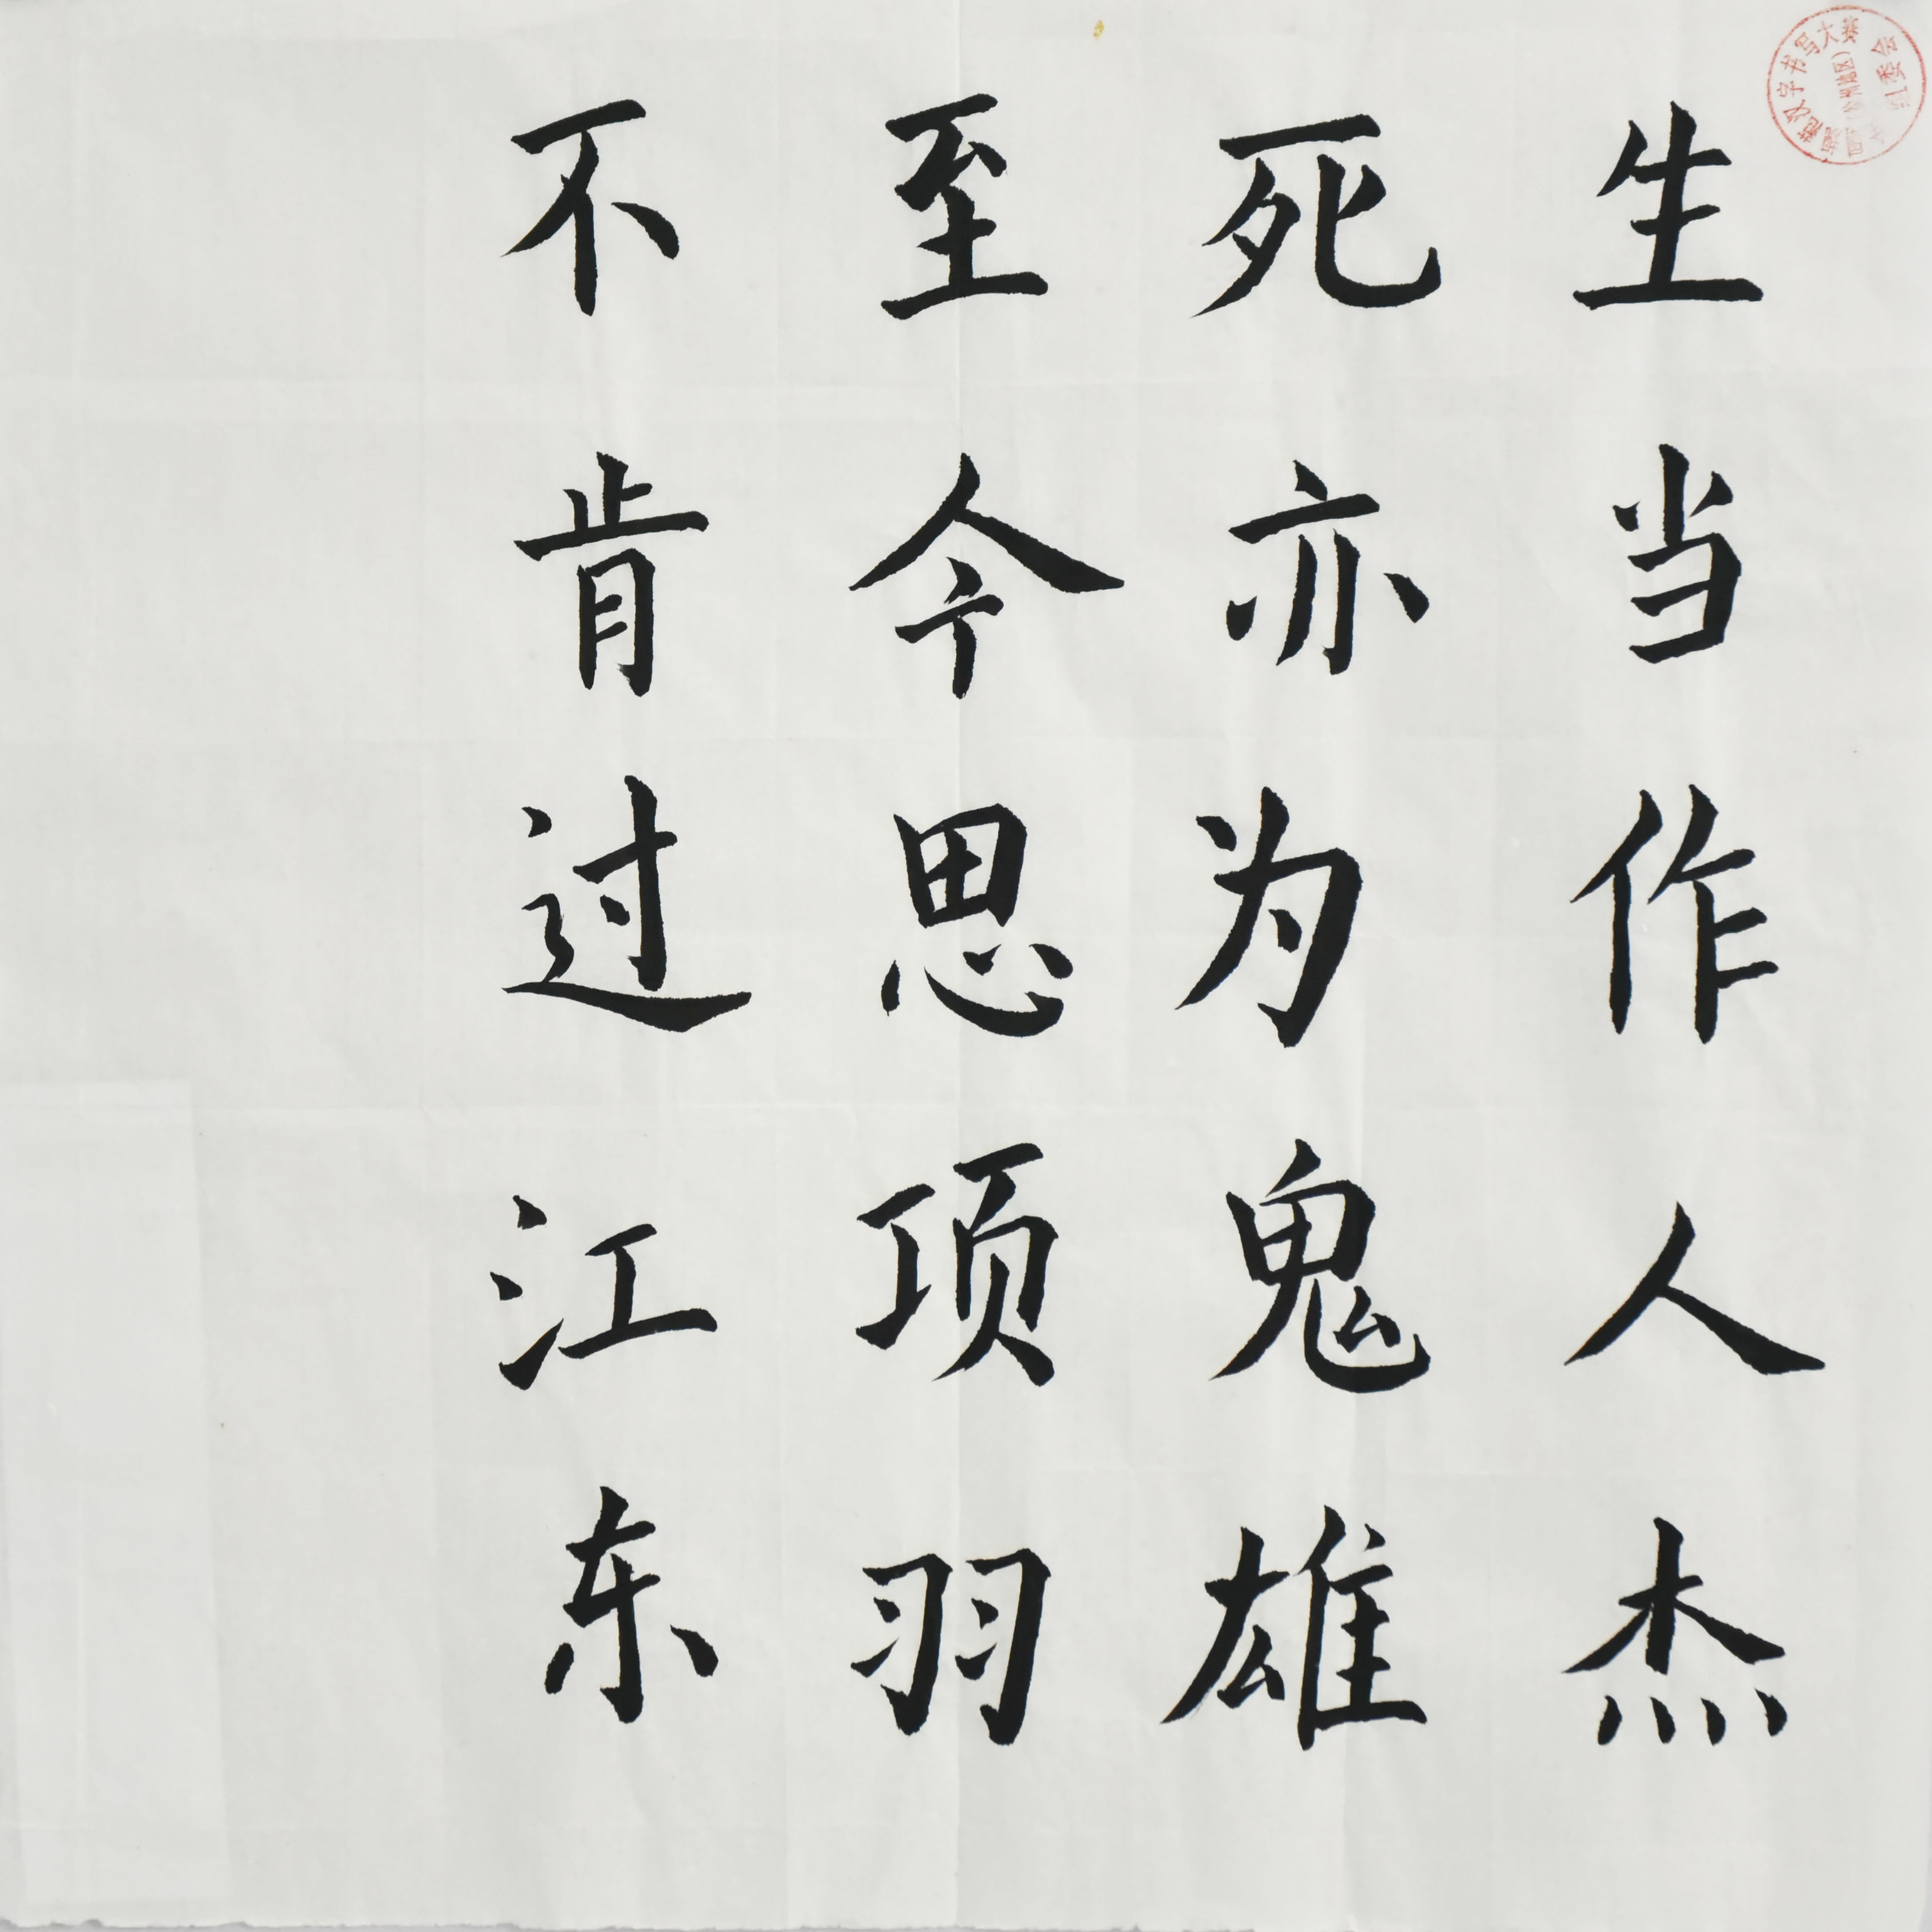 生当作人杰
死亦为鬼雄
至今思项羽
不肯过江东
规范汉字书写大赛
组委会